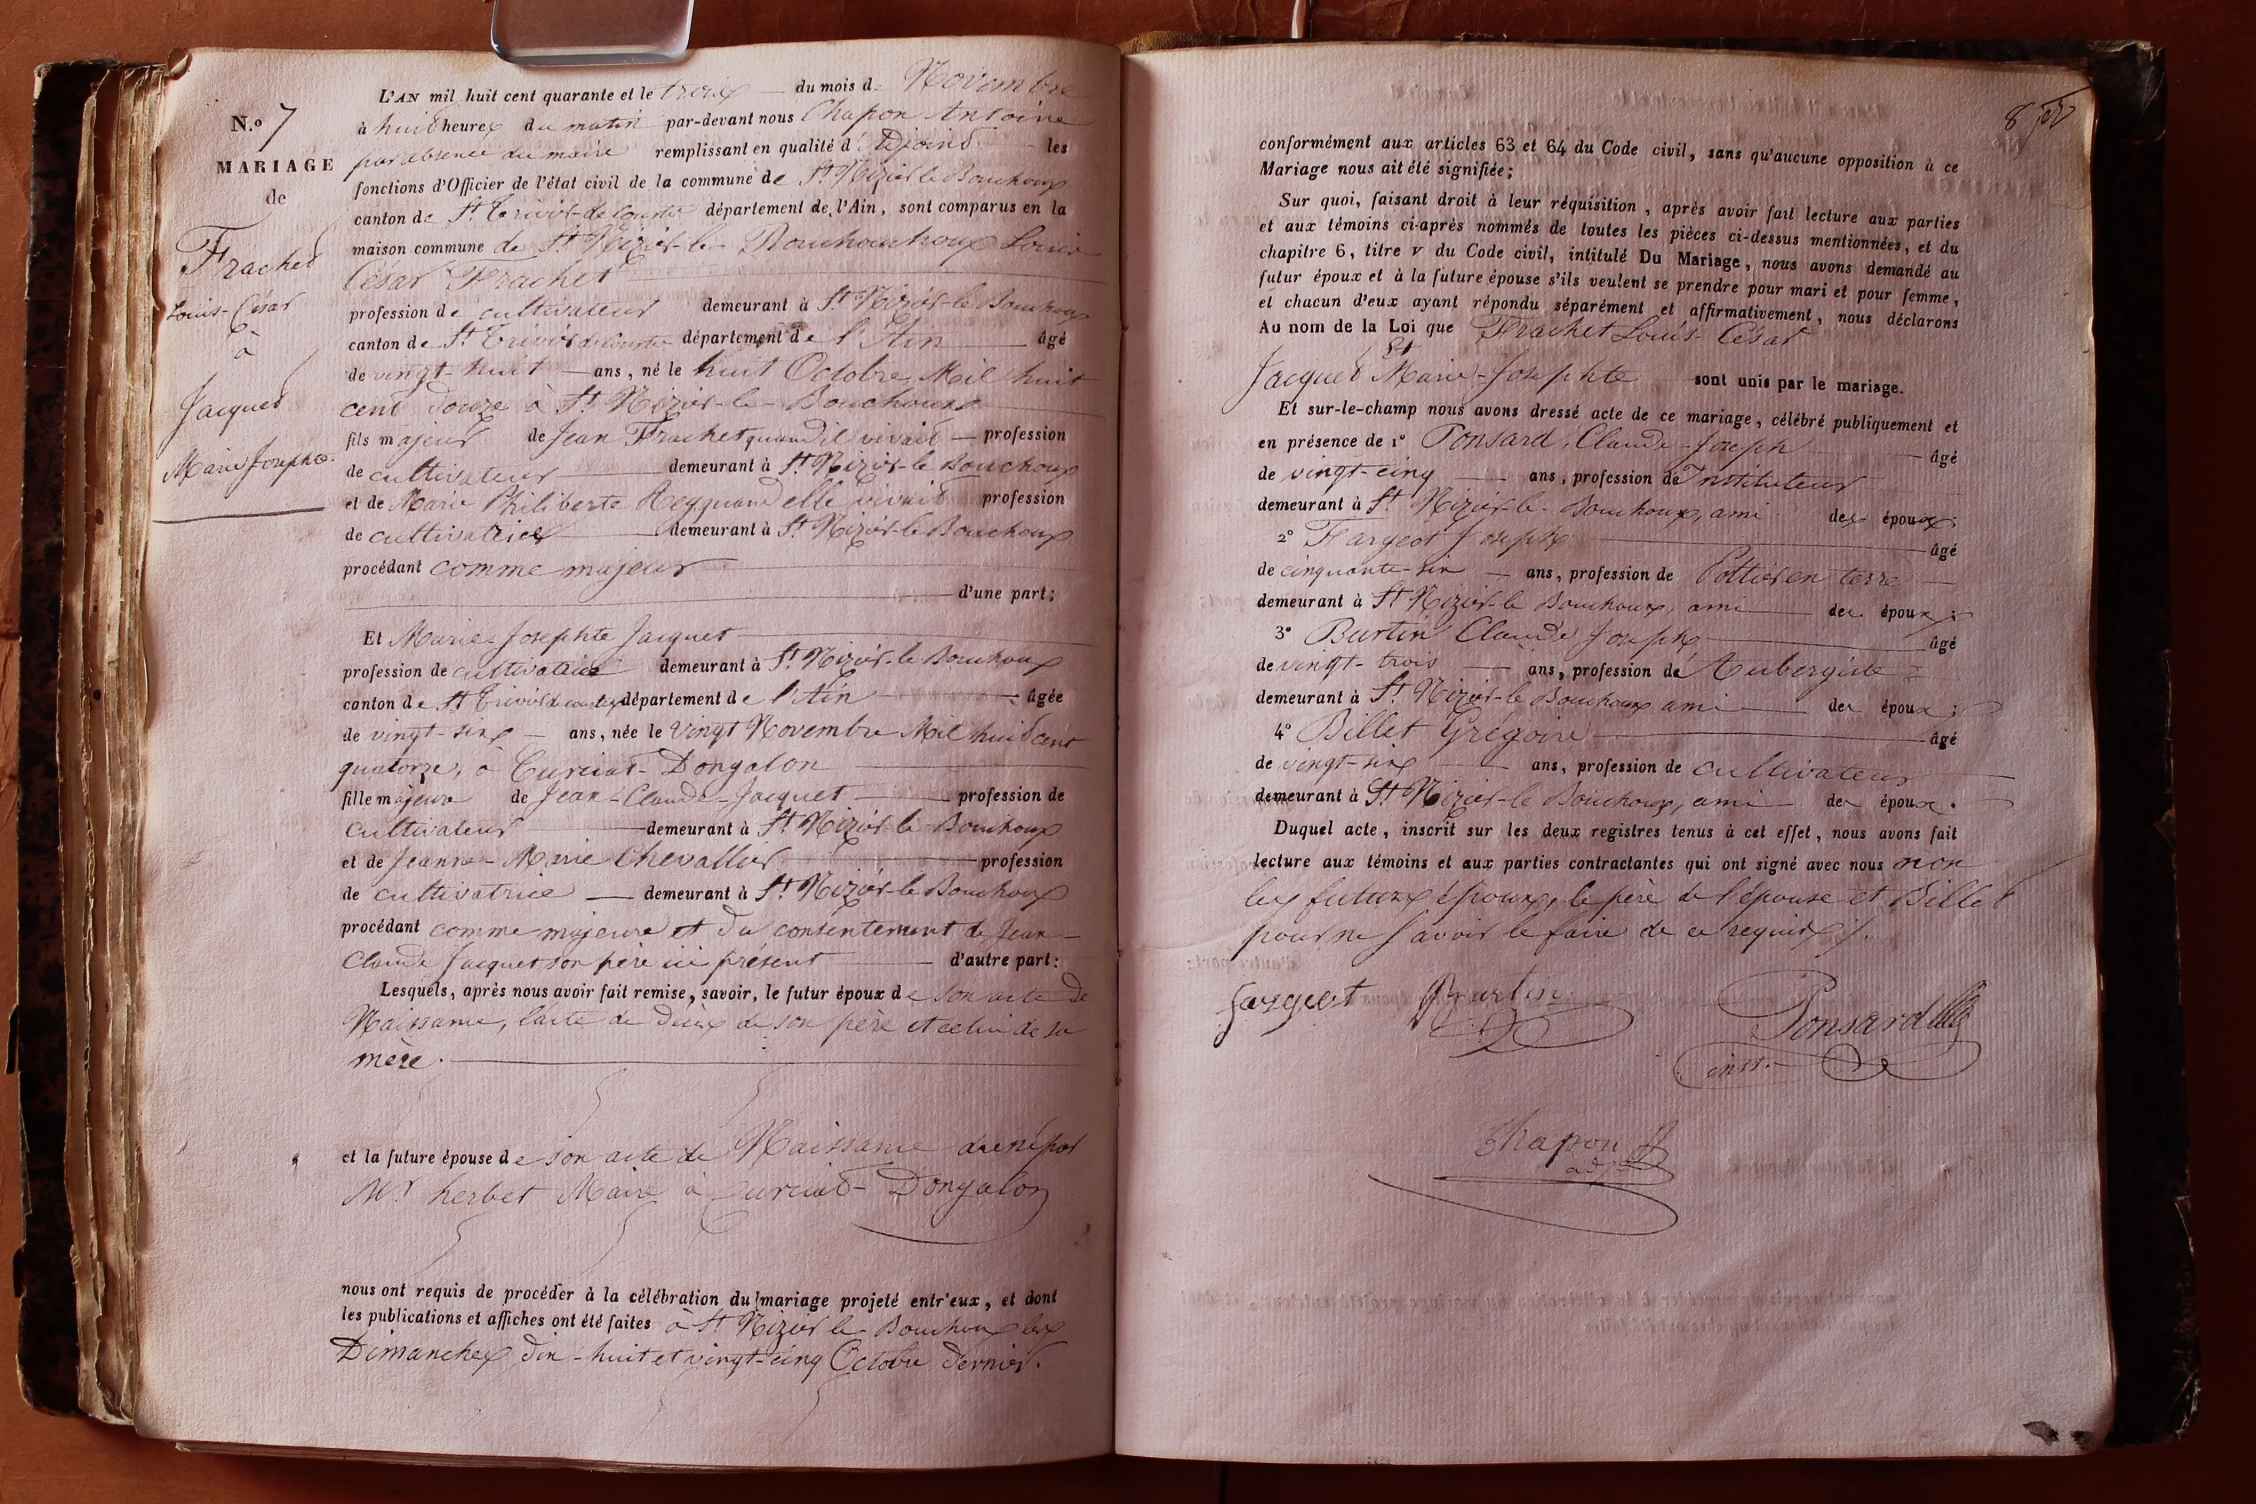 N.º 7
MARIAGE
de
Frachet
Louis-César
à
Jacquet
Marie Josephte
L'AN mil huit cent quarante et le trois du mois de Novembre
à huit heures du matin par-devant nous Chapon Antoine
par absence du maire remplissant en qualité d'Adjoint les
fonctions d'Officier de l'état civil de la commune de St Nizier le Bouchoux
canton de St Trivier-de Courtes département de l'Ain, sont comparus en la
maison commune de St Nizier-le-Bouchouchoux Louis
César Frachet
profession de cultivateur demeurant à St Nizier-le Bouchoux
canton de St Trivier de Courtes département de l'Ain âgé
de vingt-huit ans, né le huit Octobre Mil huit
cent douze à St Nizier-le-Bouchoux
fils majeur de Jean Frachet quand il vivait profession
de cultivateur demeurant à St Nizier-le Bouchoux
et de Marie Philiberte Rey quand elle vivait profession
de cultivatrice demeurant à St Nizier-le Bouchoux
procédant comme majeur
d'une part;
Et Marie-Josephte Jacquet
profession de cultivatrice demeurant à St Nizier-le Bouchoux
canton de St Trivier de courtes département de l'Ain âgée
de vingt-six ans, née le vingt Novembre Mil huit cent
quatorze, à Curciat-Dongalon
fille majeure de Jean-Claude-Jacquet profession de
cultivateur demeurant à St Nizier-le-Bouchoux
et de Jeanne-Marie Chevallier profession
de cultivatrice demeurant à St Nizier-le Bouchoux
procédant comme majeure et du consentement de Jean-
Claude Jacquet son père ici présent d'autre part:
Lesquels, après nous avoir fait remise, savoir, le futur époux de son acte de
Naissance, l'acte de Décès de son père et celui de sa
mère.
et la future épouse de son acte de Naissance par
Mr herbet Maire à Curciat-Dongalon
nous ont requis de procéder à la célébration du mariage projeté entr'eux, et dont
les publications et affiches ont été faites à St Nizier le Bouchoux les
Dimanches dix-huit et vingt-cinq Octobre dernier.
8
conformément aux articles 63 et 64 du Code civil, sans qu'aucune opposition à ce
Mariage nous ait été signifiée;
Sur quoi, faisant droit à leur réquisition, après avoir fait lecture aux parties
et aux témoins ci-après nommés de toutes les pièces ci-dessus mentionnées, et du
chapitre 6, titre V du Code civil, intitulé Du Mariage, nous avons demandé au
futur époux et à la future épouse s'ils veulent se prendre pour mari et pour femme,
et chacun d'eux ayant répondu séparément et affirmativement, nous déclarons
Au nom de la Loi que Frachet Louis-César
Et
Jacquet Marie-Josephte sont unis par le mariage.
Et sur-le-champ nous avons dressé acte de ce mariage, célébré publiquement et
en présence de 1º Ponsard, Claude-Joseph âgé
de vingt-cinq ans, profession de Instituteur
demeurant à St Nizier-le-Bouchoux, ami des époux;
2º Fargeot Joseph âgé
de cinquante-six ans, profession de Pottier en terre
demeurant à St Nizier-le Bouchoux, ami des époux;
3º Burtin Claude Joseph âgé
de vingt-trois ans, profession de Aubergiste
demeurant à St Nizier-le Bouchoux ami des époux;
4º Billet Grégoire âgé
de vingt-six ans, profession de cultivateur
demeurant à St Nizier-le Bouchoux, ami des époux.
Duquel acte, inscrit sur les deux registres tenus à cet effet, nous avons fait
lecture aux témoins et aux parties contractantes qui ont signé avec nous non
les futurs époux, le père de l'épouse et Billet
pour ne savoir le faire de ce requis.
fargeot Burtin Ponsard
inst.
Chapon
adj